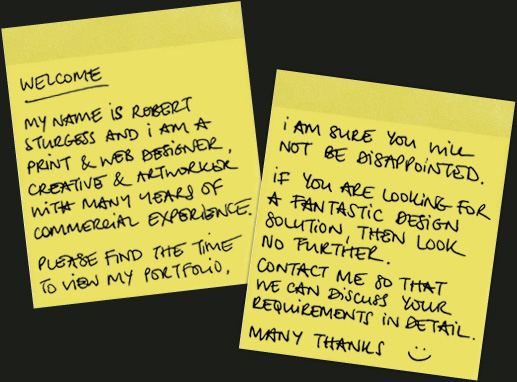 WELCOME
MY NAME IS ROBERT
STURGESS AND i AM A
PRINT & WEB DESIGNER,
CREATIVE & ARTWORKER
WITH MANY YEARS OF
COMMERCIAL EXPERIENCE.
PLEASE FIND THE TIME
TO VIEW MY PORTFOLIO,
i AM SURE YOU WILL
NOT BE DISAPPOINTED.
IF YOU ARE LOOKING FOR
A FANTASTIC DESIGN
SOLUTION, THEN LOOK
NO FURTHER.
CONTACT ME SO THAT
WE CAN DISCUSS YOUR
REQUIREMENTS IN DETAIL.
MANY THANKS